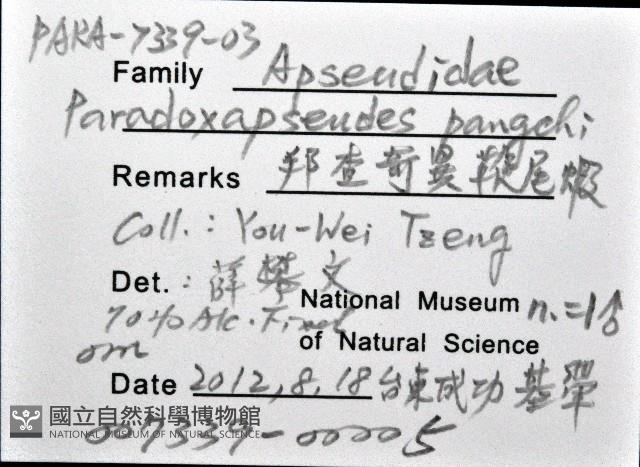 PARA-7339-03
Family Apseudidae
Paradoxapseudes pangchi
Remarks 邦查奇異鞭尾蝦
Coll.: You-Wei Tzeng
Det.: 薛攀文
National Museum n.=1♂
70% Alc. Fixed
of Natural Science
Date 2012,8,18 台東成功基翬
國立自然科學博物館
NATIONAL MUSEUM OF NATURAL SCIENCE
007339-00005